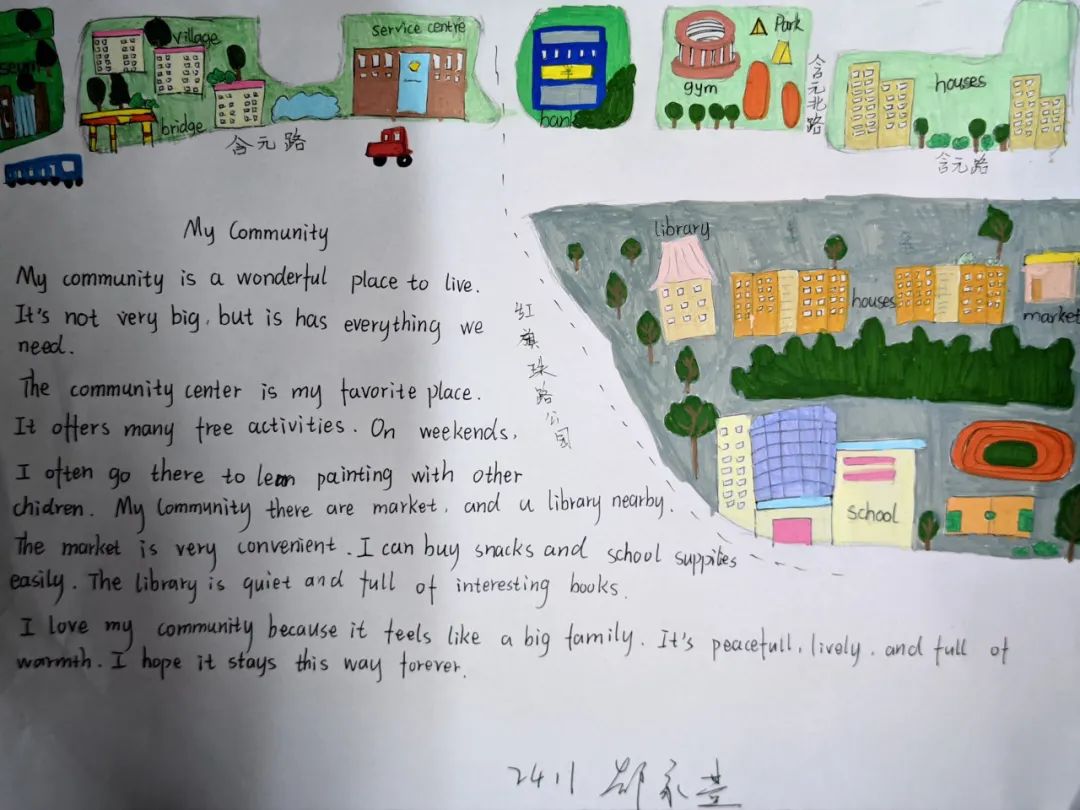 village
service centre
bridge
含元路
bank
gym
Park
含元北路
houses
含元路
library
houses
market
school
红旗珠路公园
My Community
My community is a wonderful place to live.
It's not very big, but is has everything we
need.
The community center is my favorite place.
It offers many free activities. On weekends,
I often go there to lean painting with other
chidren. My Community there are market, and a library nearby.
The market is very convenient. I can buy snacks and school supplies
easily. The library is quiet and full of interesting books.
I love my community because it feels like a big family. It's peacefull, lively, and full of
warmth. I hope it stays this way forever.
2411